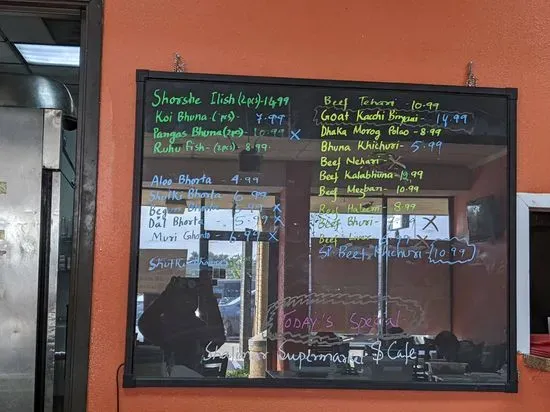 Shorshe Ilish (2pcs)-14.99
Koi Bhuna (pcs) 7.99
Pangas Bhuna (2pcs) - 10.99 x
Ruhu Fish - (2pcs) - 8.99
Aloo Bhorta - 4.99
Shutki Bhorta 6.99
Begun Bhorta x
Dal Bhorta - 5.97 x
Muri Ghonto - 6.99 x
Shutki
Beef Tehari - 10.99
Goat Kacchi Biryani - 14.99
Dhaka Morog Polao - 8.99
Bhuna Khichuri - 5.99
Beef Nehari - x
Beef Kalabhuna - 12.99
Beef Mezban - 10.99
Beef Haleem - 8.99
Beef Bhuri - x
Beef Liver
St Beef Khichuri (10.99)
Today's Special
Supermarket & Cafe